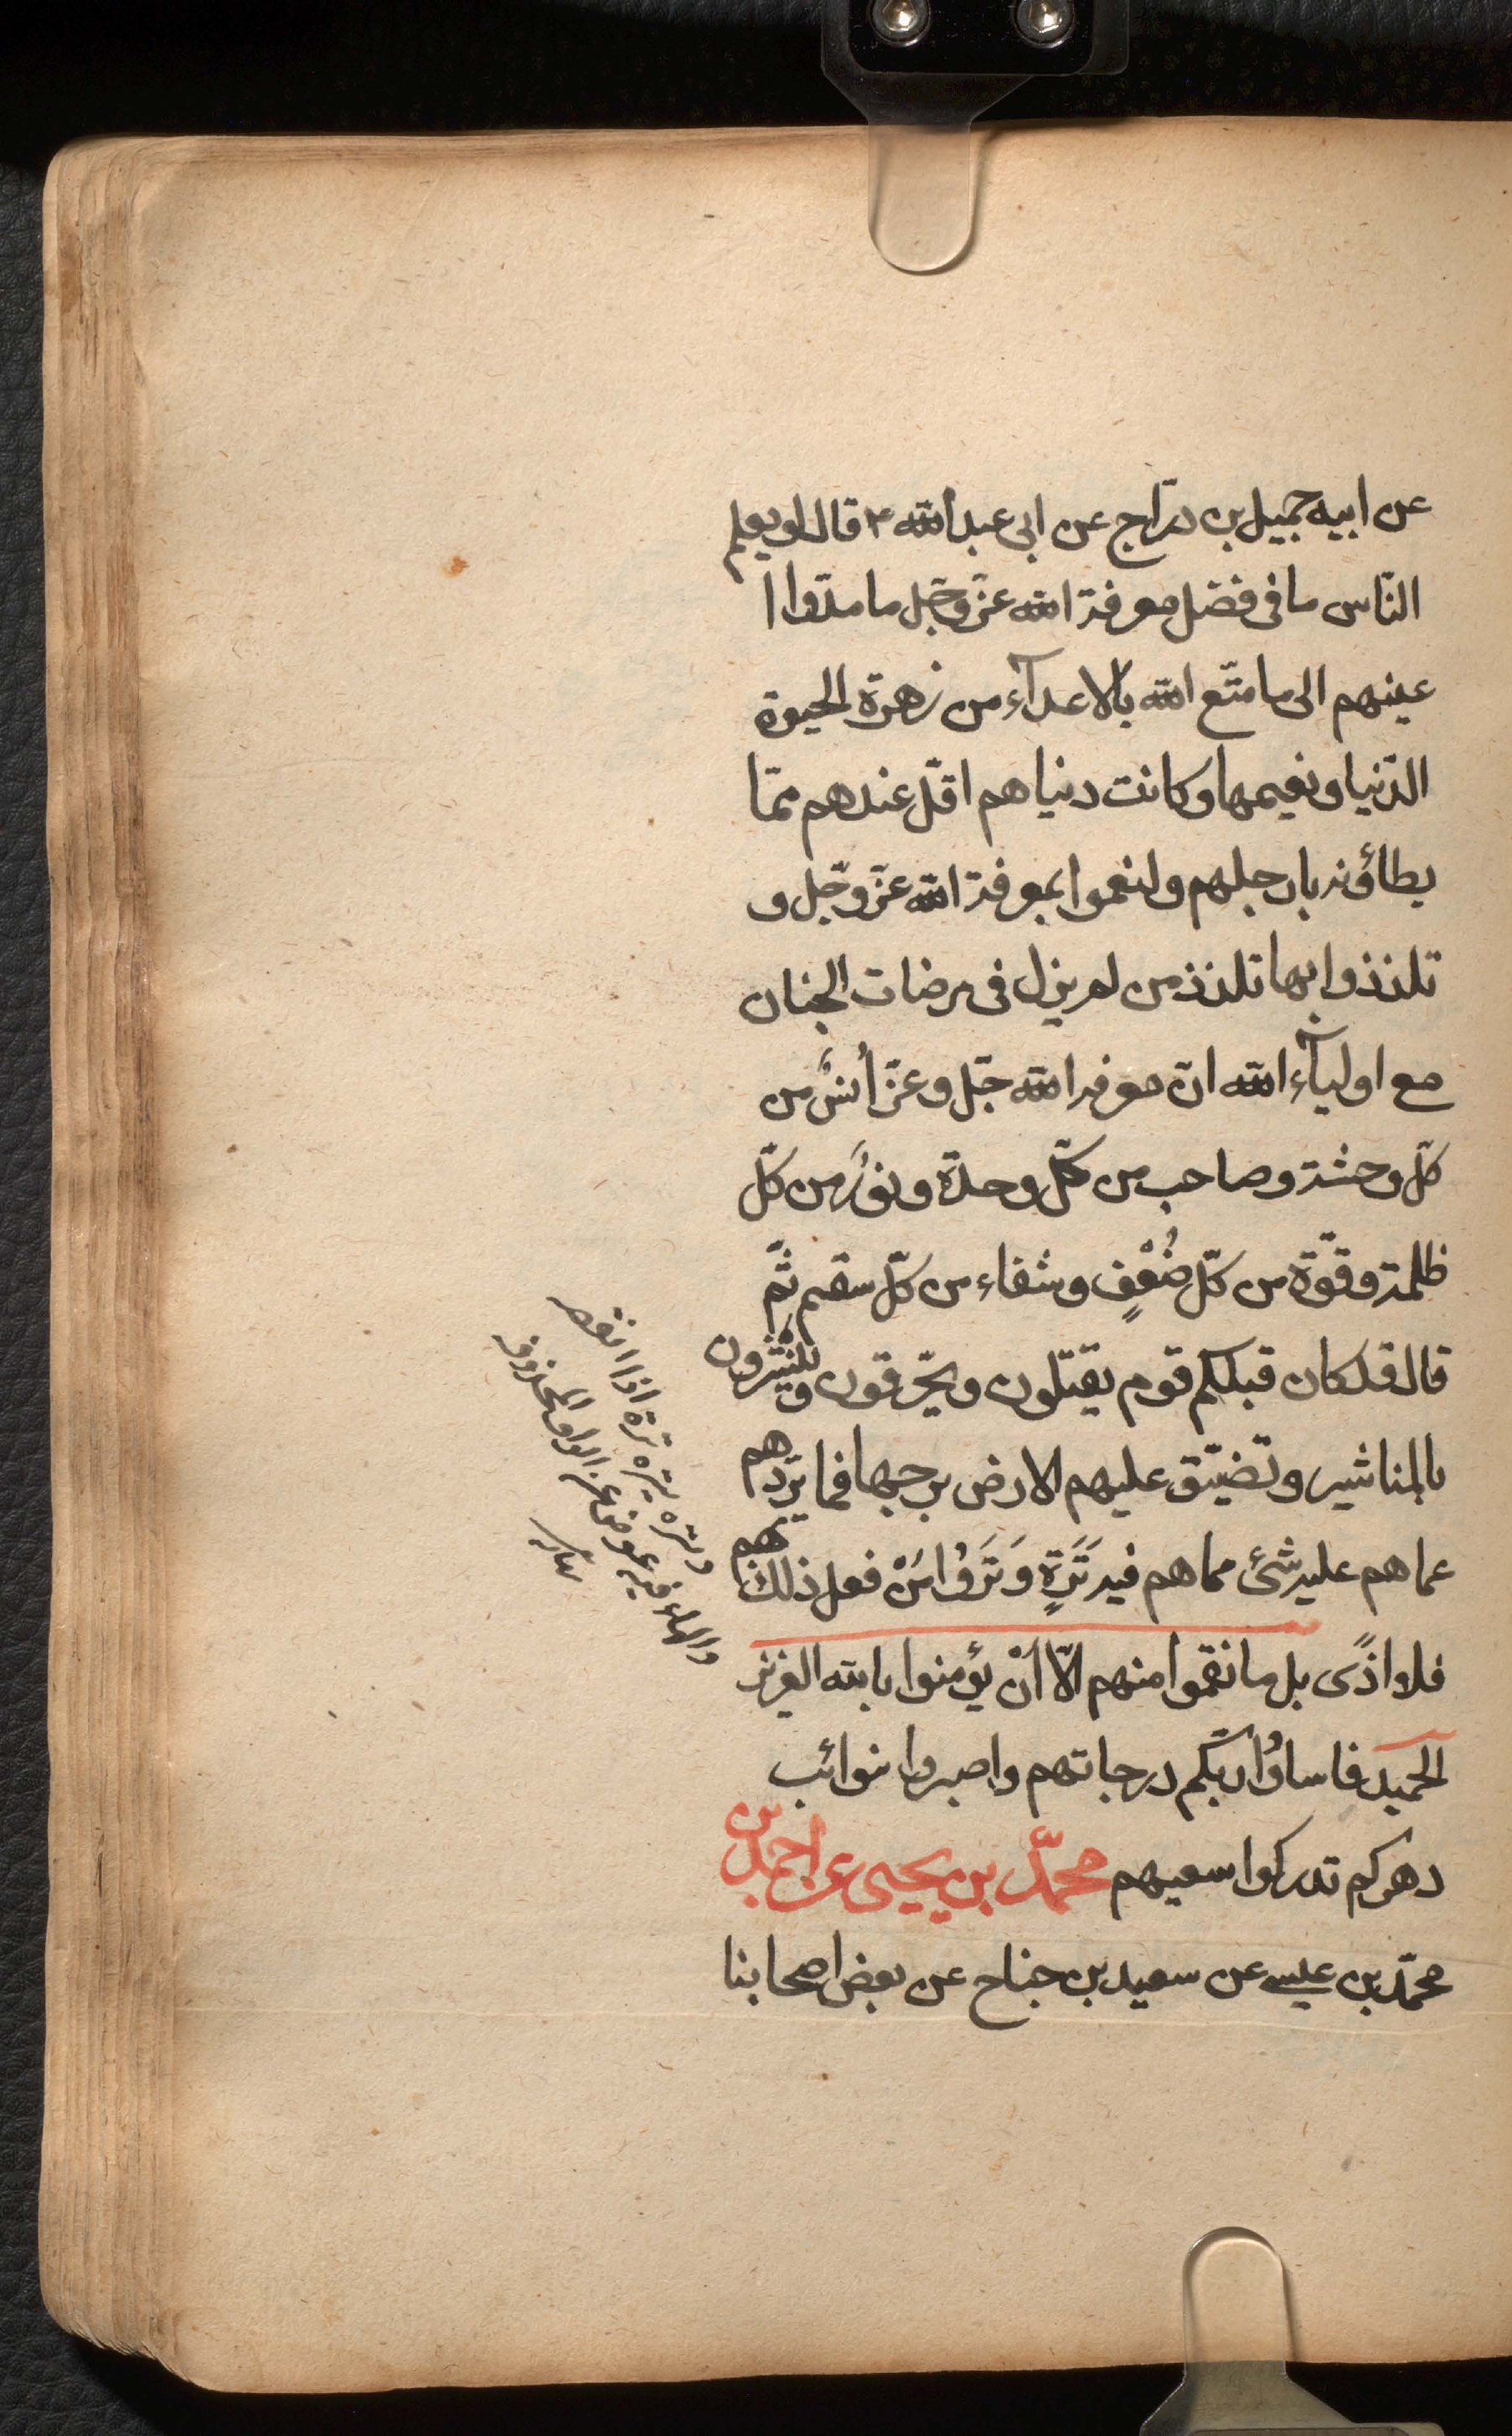 عن ابيه جميل بن درّاج عن ابى عبد الله ع قال لو يعلم
النّاس ما فى فضل معرفة الله عزّ وجّل ما مدّوا ا
عينهم الى ما متّع الله بالاعدآء من زهرة الحيوة
الدّنيا ونعيمها وكانت دنياهم اقلّ عندهم ممّا
يطاؤنه بارجلهم ولنعموا بمعرفة الله عزّ وجّل و
تلذذوا بها تلذذ من لم يزل فى رضات الجنان
مع اوليآء الله انّ معرفة الله جّل وعزّ أُنسٌ من
كلّ وحشة وصاحب من كلّ وحدة ونورٌ من كلّ
ظلمة وقوّة من كلّ ضُعْفٍ وشفاء من كلّ سقم ثمّ
قال قد كان قبلكم قوم يقتلون ويحّرقون وينشرون
بالمناشير وتضيّق عليهم الارض برحبها فما يردّهم
عما هم عليه شئ مما هم فيه تَرَةٍ وَتَرَوُا مَنْ فعل ذلك بهم
فلا اذًى بل ما نقموا منهم الّا أنْ يؤمنوا بالله العزيز
الحميد فاسالُوا ربّكم درجاتهم واصبروا نوائب
دهركم تدركوا سعيهم محمّد بن يحيى عن احمد بن
محمّد بن عيسى عن سعيد بن جناح عن بعض اصحابنا
وتره يتره ترة اذا نقصه
والهاء فيه عوض عن الواو المحذوفة